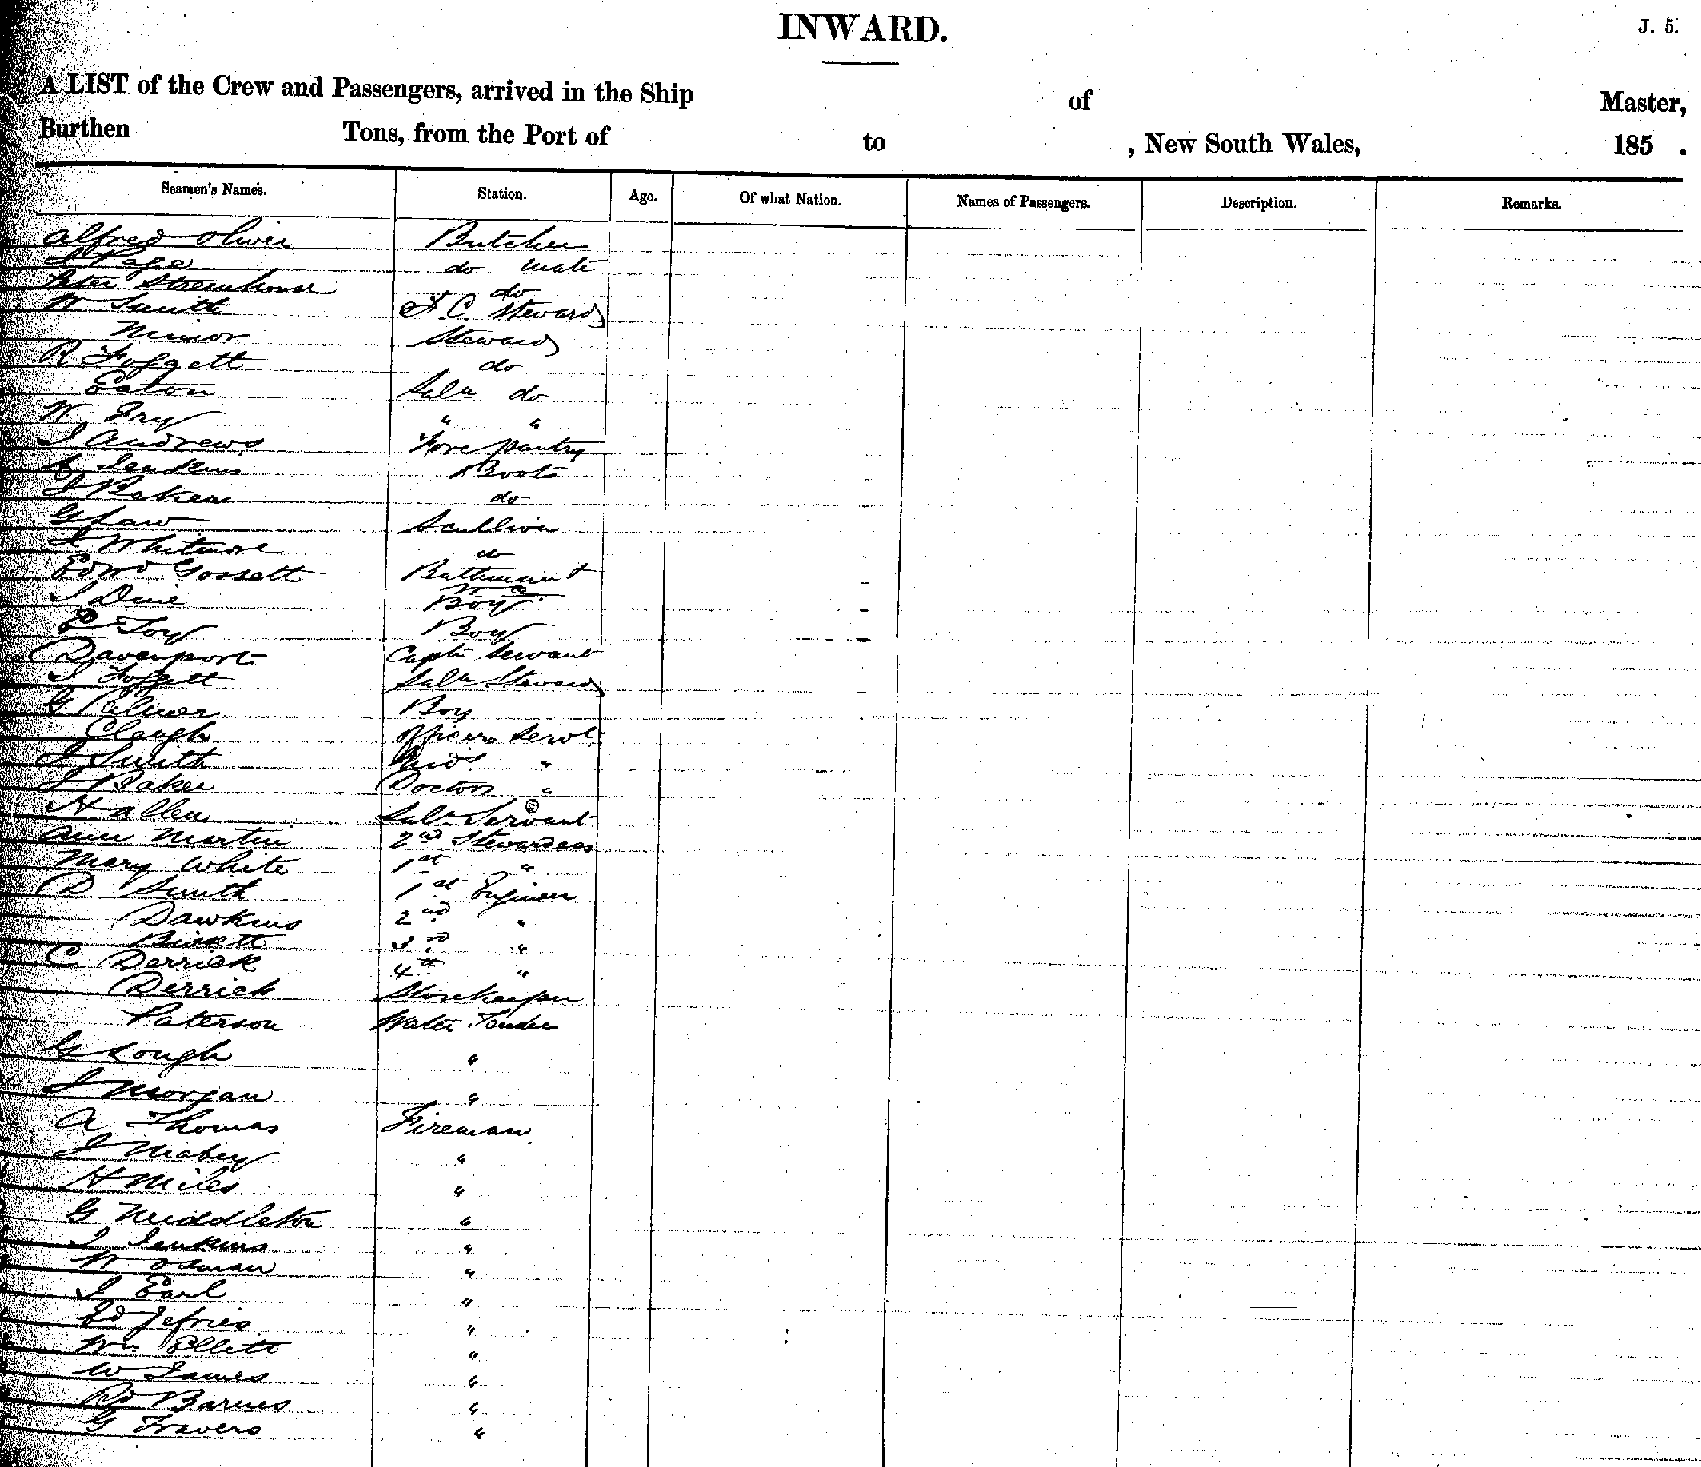 INWARD.
J. 5.
A LIST of the Crew and Passengers, arrived in the Ship of Master,
Burthen Tons, from the Port of to , New South Wales, 185 .
Seamen's Names. Station. Age. Of what Nation. Names of Passengers. Description. Remarks.
Alfred Oliver Butcher
Page do mate
Peter do
W Smith C. Steward
Minor Steward
R Foggett do
Eaton Saln do
W Fry " "
J Andrews Fore pantry
Jenkins Boots
J do
G Law Scullion
J Whitmore do
Edwd Gossett
J Boy
E Toy Boy
Davenport Capts Servant
J Foggett Saln Steward
G Palmer Boy
Clough officers Servt
J Smith "
J Baker Doctors "
H Allen Saln Servant
Ann Martin 2nd Stewardess
Mary White 1st "
D Smith 1st Engineer
Dawkins 2nd "
3rd "
C Derrick 4th "
Derrick Storekeeper
Paterson Water Tender
G Lough "
J Morgan "
A Thomas Fireman
J "
H Miles "
G Middleton "
J Jenkins "
W "
J Earl "
Ed Jefries "
Wm Ellett "
W James "
Rd Barnes "
G Travers "